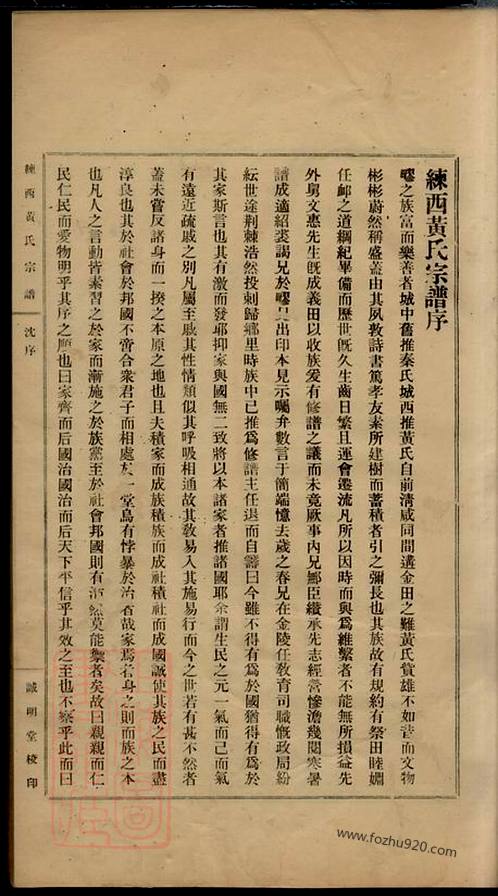 練西黃氏宗譜序
之族富而樂善者城中舊推秦氏城西推黃氏自前淸咸同間遘金田之難黃氏貲雄不如昔而文物
彬彬蔚然稱盛蓋由其夙敦詩書篤孝友素所建樹而蓄積者引之彌長也其族故有規約有祭田睦婣
任卹之道綱紀畢備而歷世旣久生齒日繁且運會遷流凡所以因時而與爲維繫者不能無所損益先
外舅文惠先生旣成義田以收族爰有修譜之議而未竟厥事內兄鄦臣纘承先志經營慘澹幾閱寒暑
譜成適紹裘謁兄於出印本見示囑弁數言于簡端憶去歲之春兄在金陵任敎育司職慨政局紛
紜世途荆棘浩然投刺歸鄉里時族中已推爲修譜主任退而自籌曰今雖不得有爲於國猶得有爲於
其家斯言也其有激而發耶抑家與國無二致將以本諸家者推諸國耶余謂生民之元一氣而已而氣
有遠近疏戚之別凡屬至戚其性情類似其呼吸相通故其敎易入其施易行而今之世若有甚不然者
蓋未嘗反諸身而一揆之本原之地也且夫積家而成族積族而成社積社而成國誠使其族之民而盡
淳良也其於社會於邦國不啻合衆君子而相處於一堂烏有悖暴於治者哉家焉者身之則而族之本
也凡人之言動皆素習之於家而漸施之於族黨至於社會邦國則有沛然莫能禦者矣故曰親親而仁
民仁民而愛物明乎其序之順也曰家齊而后國治國治而后天下平信乎其效之至也不察乎此而曰
練西黃氏宗譜 沈序 誠明堂校印
www.fozhu920.com